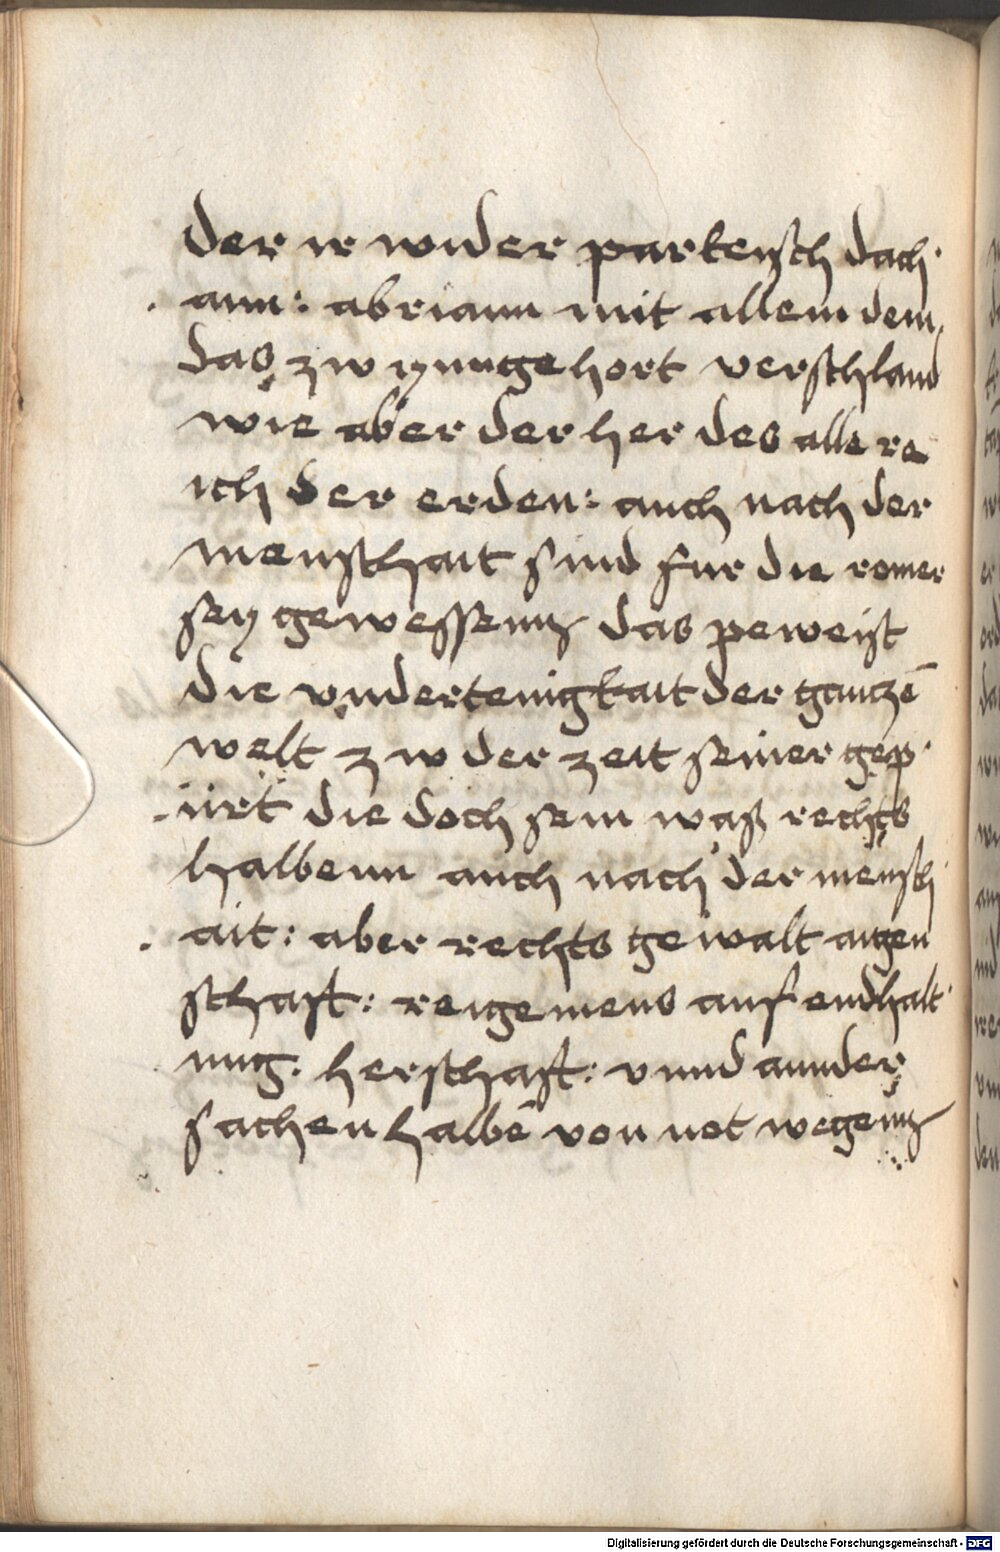 der ir wider parteysch dach
ann: abriann mit allem dem
das zw ynngehort verschland
wie aber der her des alle re
ich der erden: auch nach der
menschait sind fur die romer
sey gewessenn das peweist
die vndertenigkait der gantzē
welt zw der zeit seiner gep
ürt die doch sein waß rechts
halbenn auch nach der mensch
ait: aber rechts gewalt aigen
schaft: reigemens aufendhalt
nng. herschaft: vnnd annder
sachen halbē von not wegenn
Digitalisierung gefördert durch die Deutsche Forschungsgemeinschaft - DFG